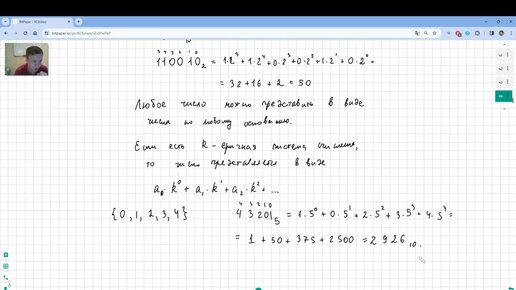 BitPaper
bitpaper.io
5 4 3 2 1 0
110010₂ = 1·2⁵ + 1·2⁴ + 0·2³ + 0·2² + 1·2¹ + 0·2⁰ =
= 32 + 16 + 2 = 50
Любое число можно представить в виде
числа по любому основанию.
Если есть k - ричная система счисления,
то число представляется в виде
a₀·k⁰ + a₁·k¹ + a₂·k² + ...
4 3 2 1 0
{0, 1, 2, 3, 4} 43201₅ = 1·5⁰ + 0·5¹ + 2·5² + 3·5³ + 4·5⁴ =
= 1 + 50 + 375 + 2500 = 2926₁₀.